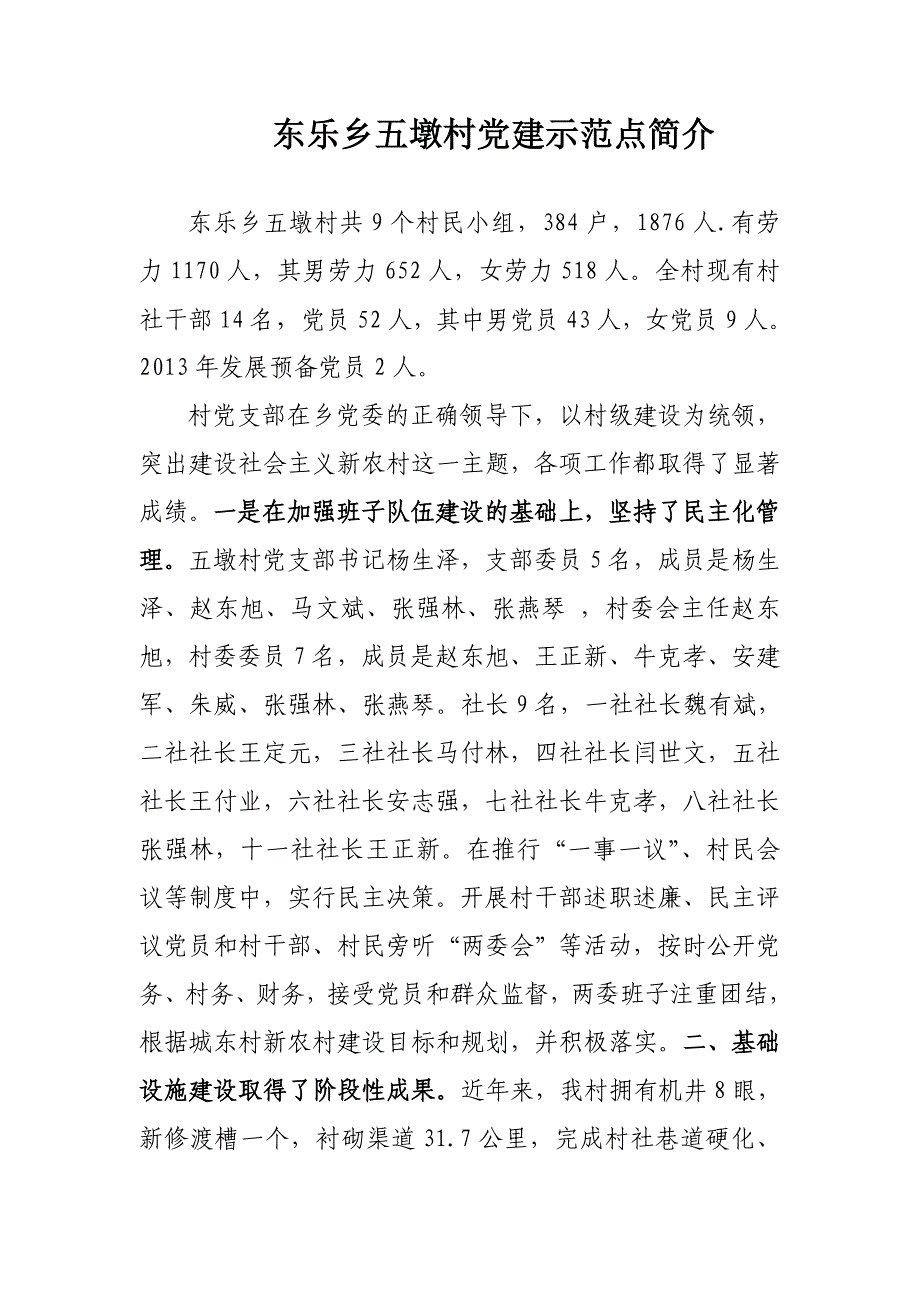 东乐乡五墩村党建示范点简介
东乐乡五墩村共 9 个村民小组，384 户，1876 人.有劳
力 1170 人，其男劳力 652 人，女劳力 518 人。全村现有村
社干部 14 名，党员 52 人，其中男党员 43 人，女党员 9 人。
2013 年发展预备党员 2 人。
村党支部在乡党委的正确领导下，以村级建设为统领，
突出建设社会主义新农村这一主题，各项工作都取得了显著
成绩。一是在加强班子队伍建设的基础上，坚持了民主化管
理。五墩村党支部书记杨生泽，支部委员 5 名，成员是杨生
泽、赵东旭、马文斌、张强林、张燕琴 ，村委会主任赵东
旭，村委委员 7 名，成员是赵东旭、王正新、牛克孝、安建
军、朱威、张强林、张燕琴。社长 9 名，一社社长魏有斌，
二社社长王定元，三社社长马付林，四社社长闫世文，五社
社长王付业，六社社长安志强，七社社长牛克孝，八社社长
张强林，十一社社长王正新。在推行“一事一议”、村民会
议等制度中，实行民主决策。开展村干部述职述廉、民主评
议党员和村干部、村民旁听“两委会”等活动，按时公开党
务、村务、财务，接受党员和群众监督，两委班子注重团结，
根据城东村新农村建设目标和规划，并积极落实。二、基础
设施建设取得了阶段性成果。近年来，我村拥有机井 8 眼，
新修渡槽一个，衬砌渠道 31.7 公里，完成村社巷道硬化、